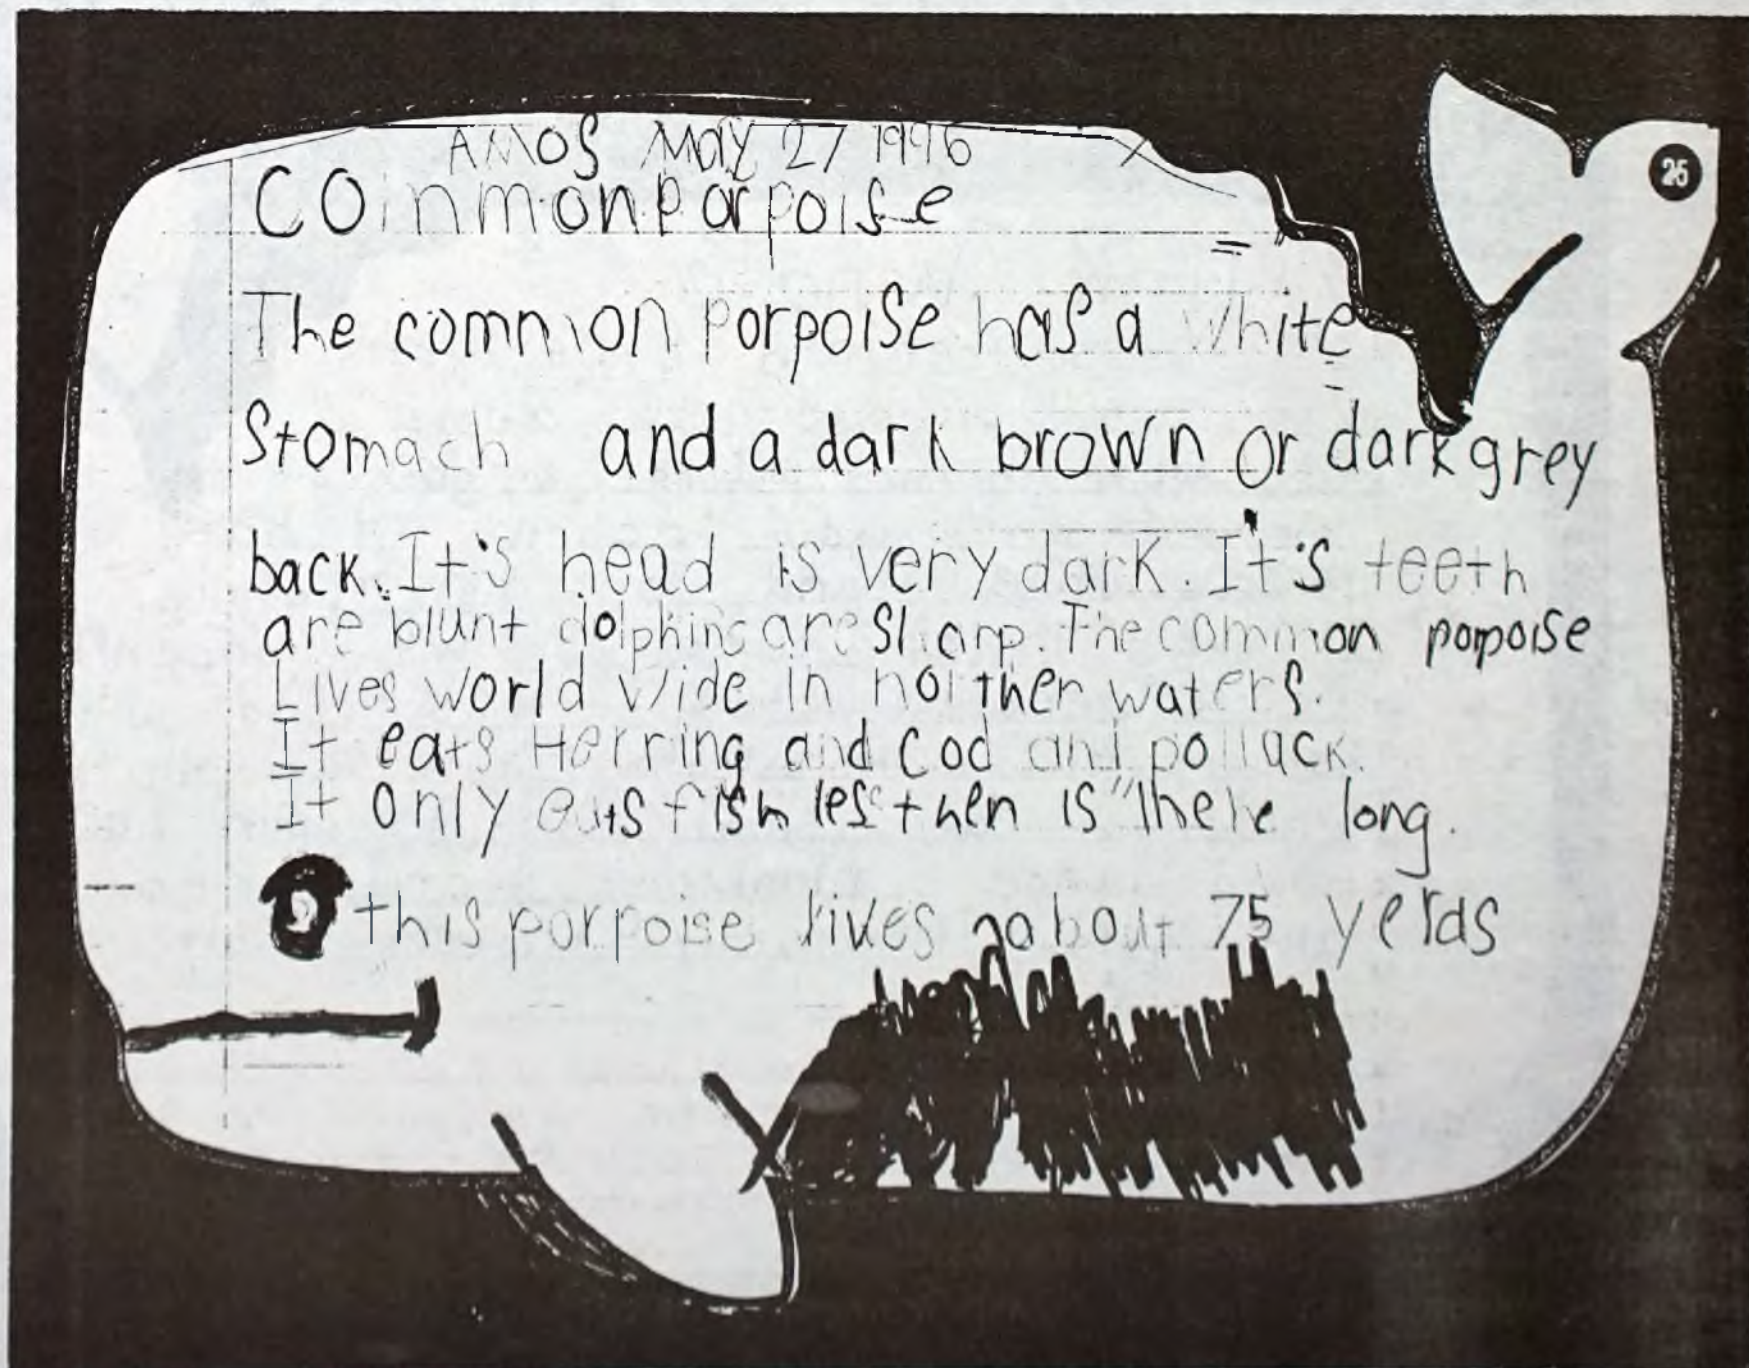 AMOS MAY 27 1996
25
COinmon Porpoise
The common porpoise has a white
Stomach and a dark brown or dark grey
back. It's head is very dark. It's teeth
are blunt dolphins are Sharp. The common popoise
Lives world wide in norther waters.
It eats Herring and Cod and pollack.
It only eats fish les then long.
this porpoise lives about 75 yerds